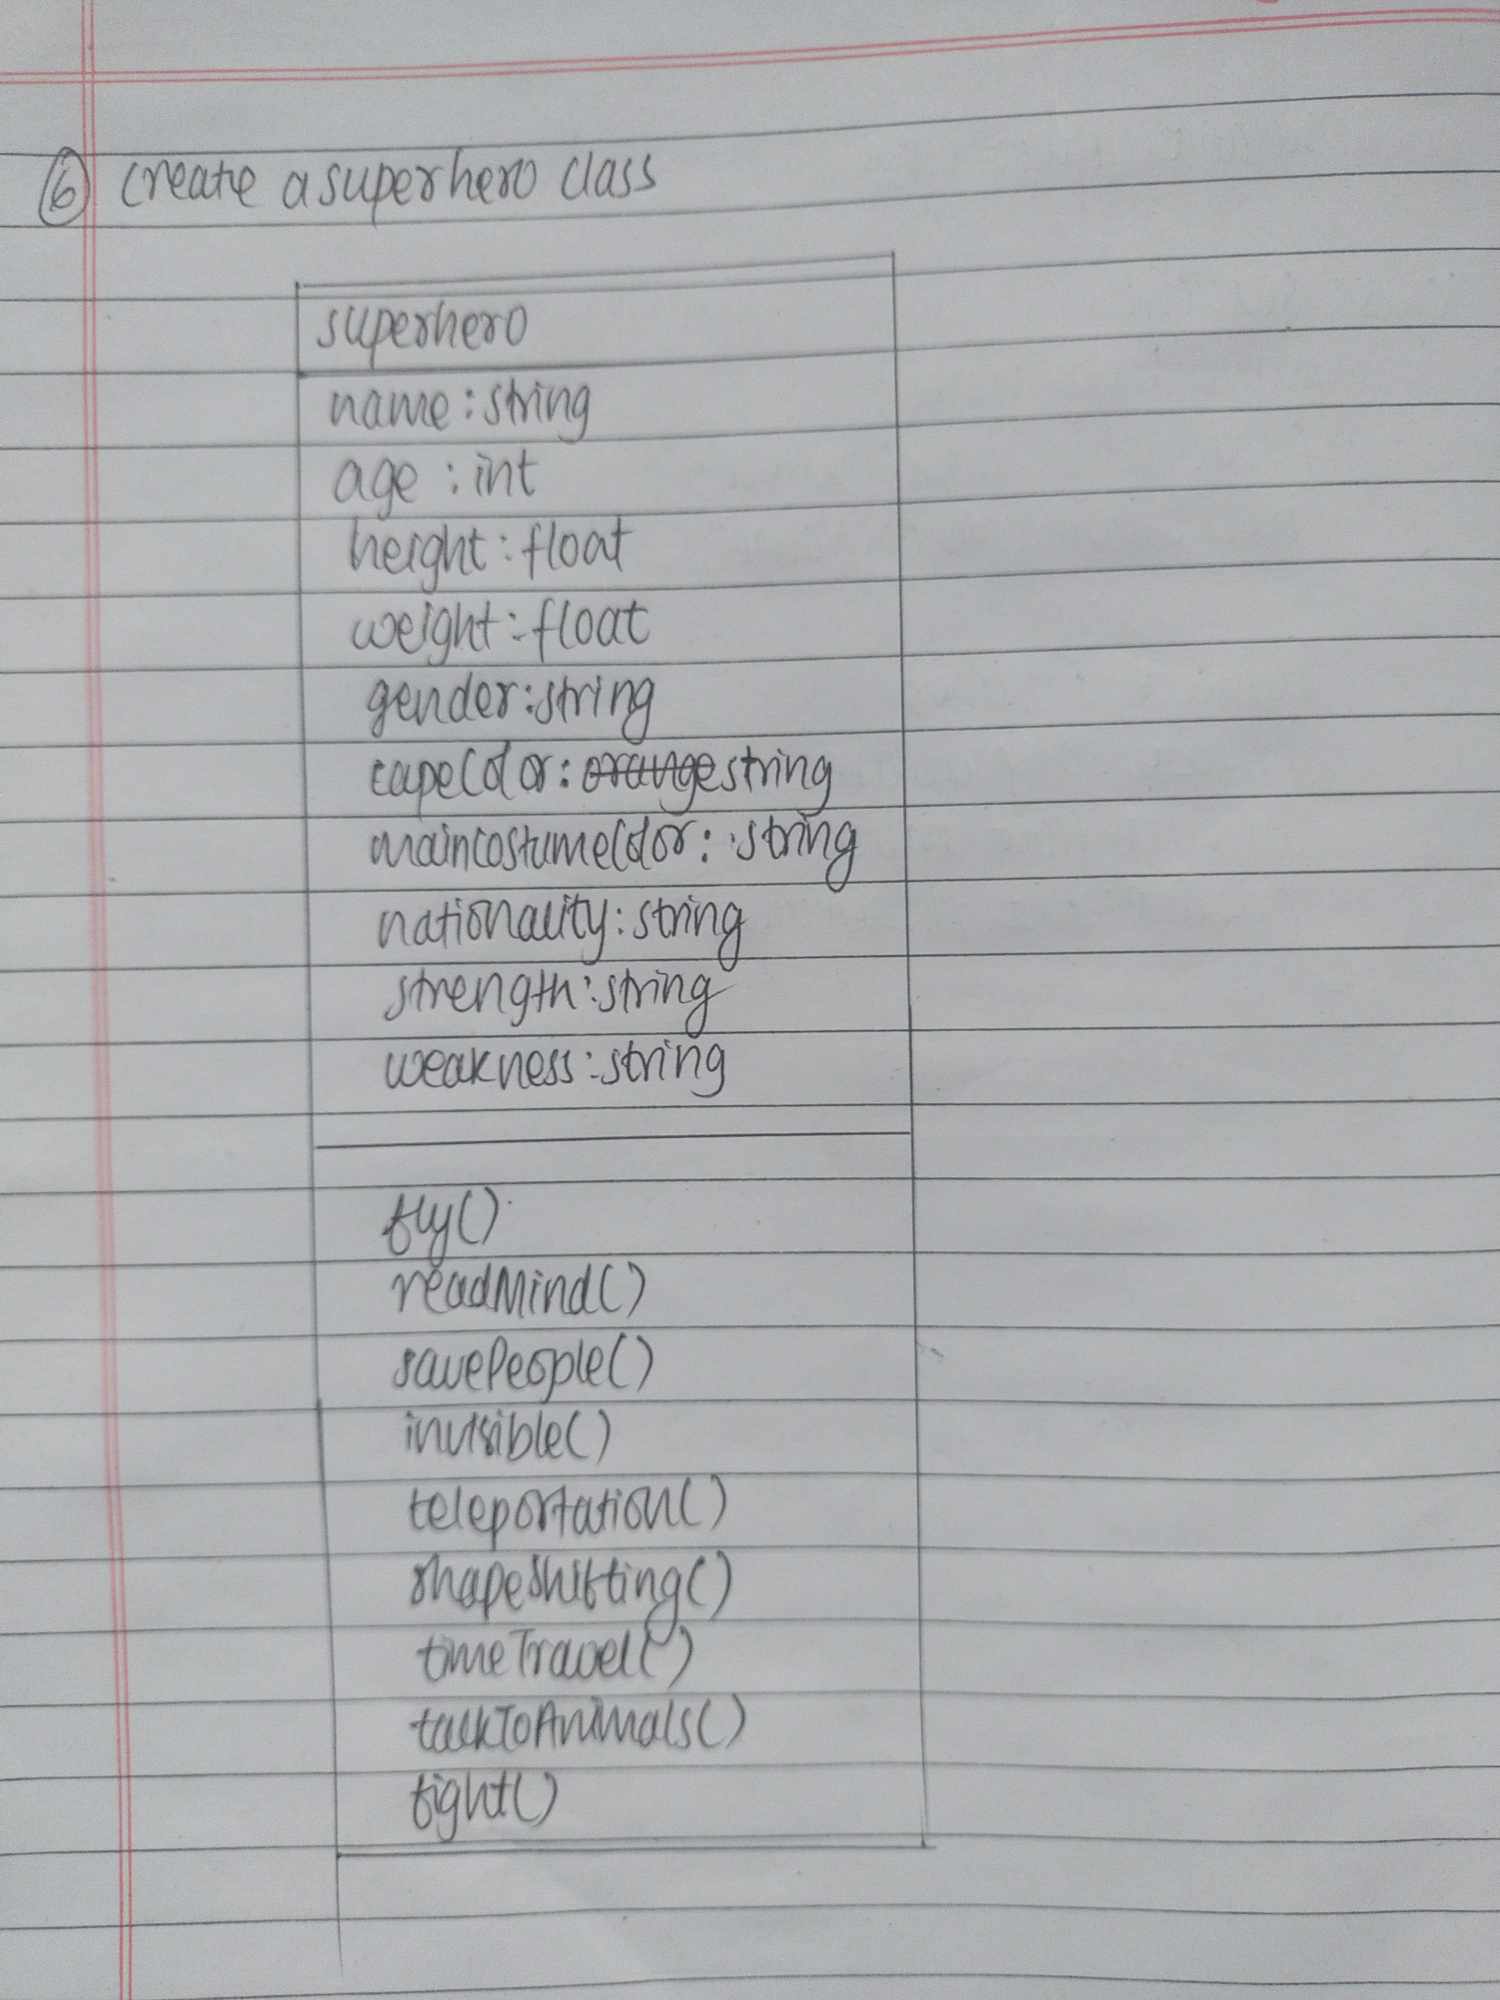 6 create a superhero class
superhero
name : string
age : int
height : float
weight : float
gender : string
capeColor : orange string
mainCostumeColor : string
nationality : string
strength : string
weakness : string
fly()
readMind()
savePeople()
invisible()
teleportation()
shapeshifting()
timeTravel()
talkToAnimals()
fight()